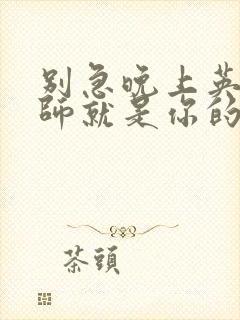 别急晚上英
师就是你的
茶頭